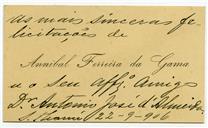 as mais sinceras fe-
licitações de
Annibal Ferreira da Gama
ao seu Affº Amigo
Dr. Antonio José d'Almeida
22-9-906